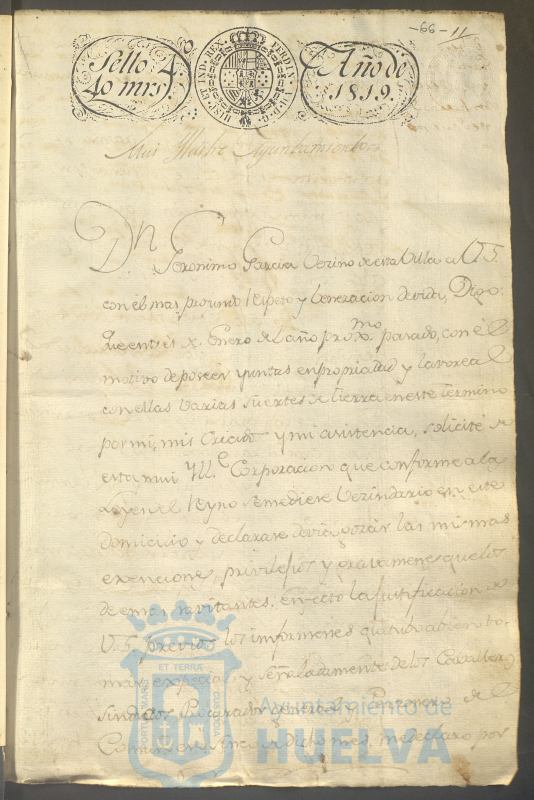 -66-11
Sello 4.º
40 mrs.
HISP. ET IND. REX. FERDIN. VII. D. G.
Año de
1819.
Mui Ilustre Ayuntamiento
Dn Geronimo Garcia Vezino de esta Villa a V.S.
con el mas profundo Respeto y beneracion devida, Digo
Que en tres de Enero del año proxmo pasado, con el
motivo de poseer yuntas en propriedad y lavorear
con ellas varias suertes de tierra en este termino
por mi, mis criados y mi asistencia, solicité de
esta mui Ylle Corporacion que conforme a las
Leyes del Reyno se me diese Vezindario en este
domicilio y declarase devia gozar las mismas
exenciones, privilejios y gravamenes que los
demas havitantes. En efecto la justificacion de
V.S. previos los informenes que tubo a bien to-
mar y señaladamente de los Cavalleros
sindicos Procurador general y Personero del
Comun en cinco de dicho mes, me declaro por
PORTUS MARIS
ET TERRÆ
CUSTODIA
Ayuntamiento de
HUELVA